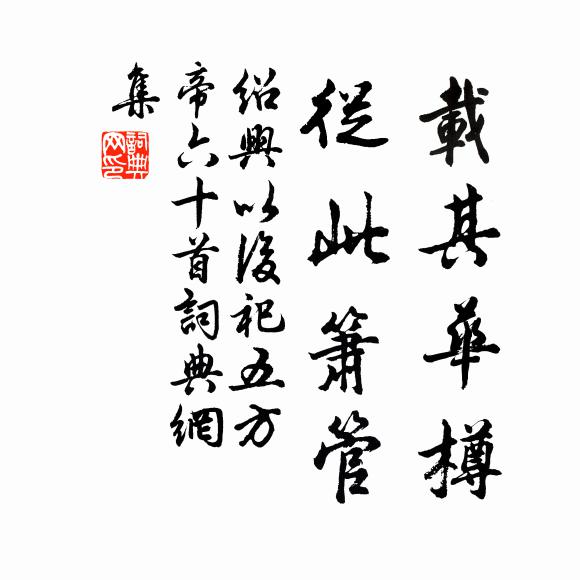 載其華樽
從此簫管
紹興以後祀五方
帝六十首詞典網
集
詞典網印